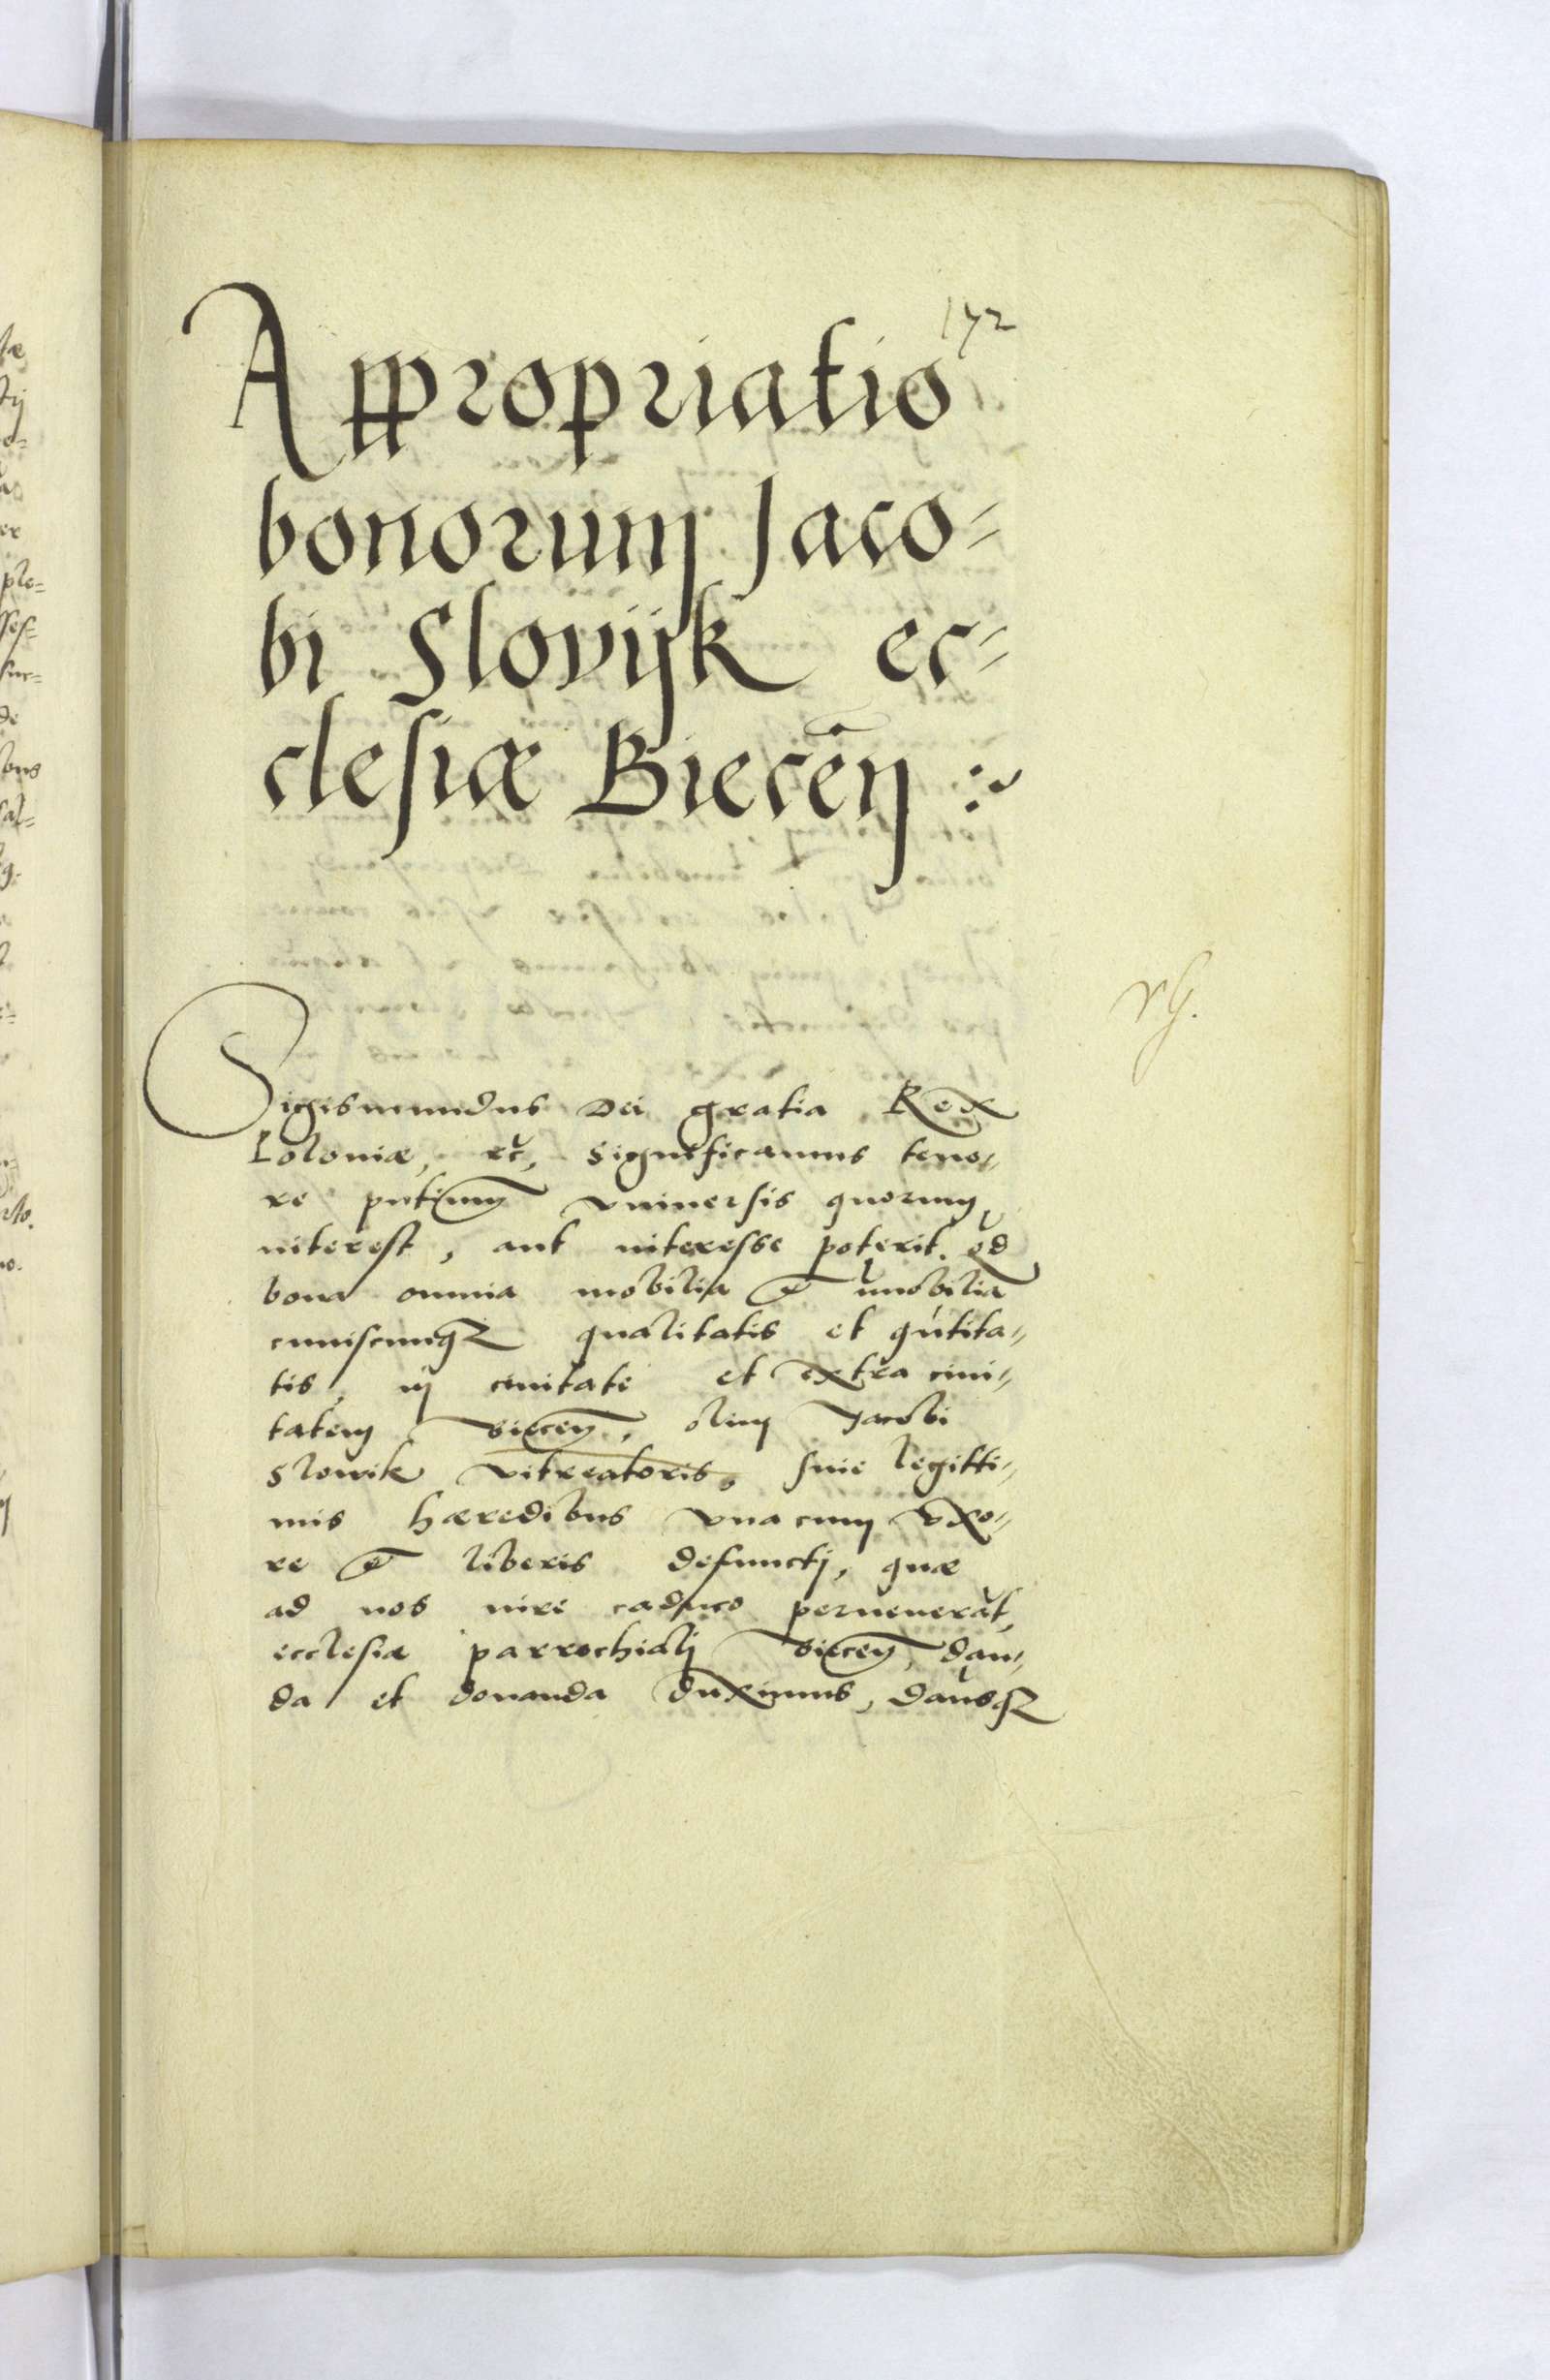 172
Appropriatio
bonorum Jaco-
bi Slovijk ec-
clesiæ Biecen̄
Sigismundus Dei gratia Rex
Poloniæ, etc, significamus teno-
re pn̄tium vniuersis quorum
interest, aut interesse poterit. Qd
bona omnia mobilia et im̄obilia
cuiuscunqz qualitatis et qūtita-
tis, in ciuitate et extra ciui-
tatem Biecen̄, olim Jacobi
Slowik vitreatoris, sine legitti-
mis hæredibus vna cum vxo-
re et liberis defuncti, quæ
ad nos iure caduco peruenerāt,
ecclesiæ parrochiali Biecen̄, dan-
da et donanda duximus, damusqz